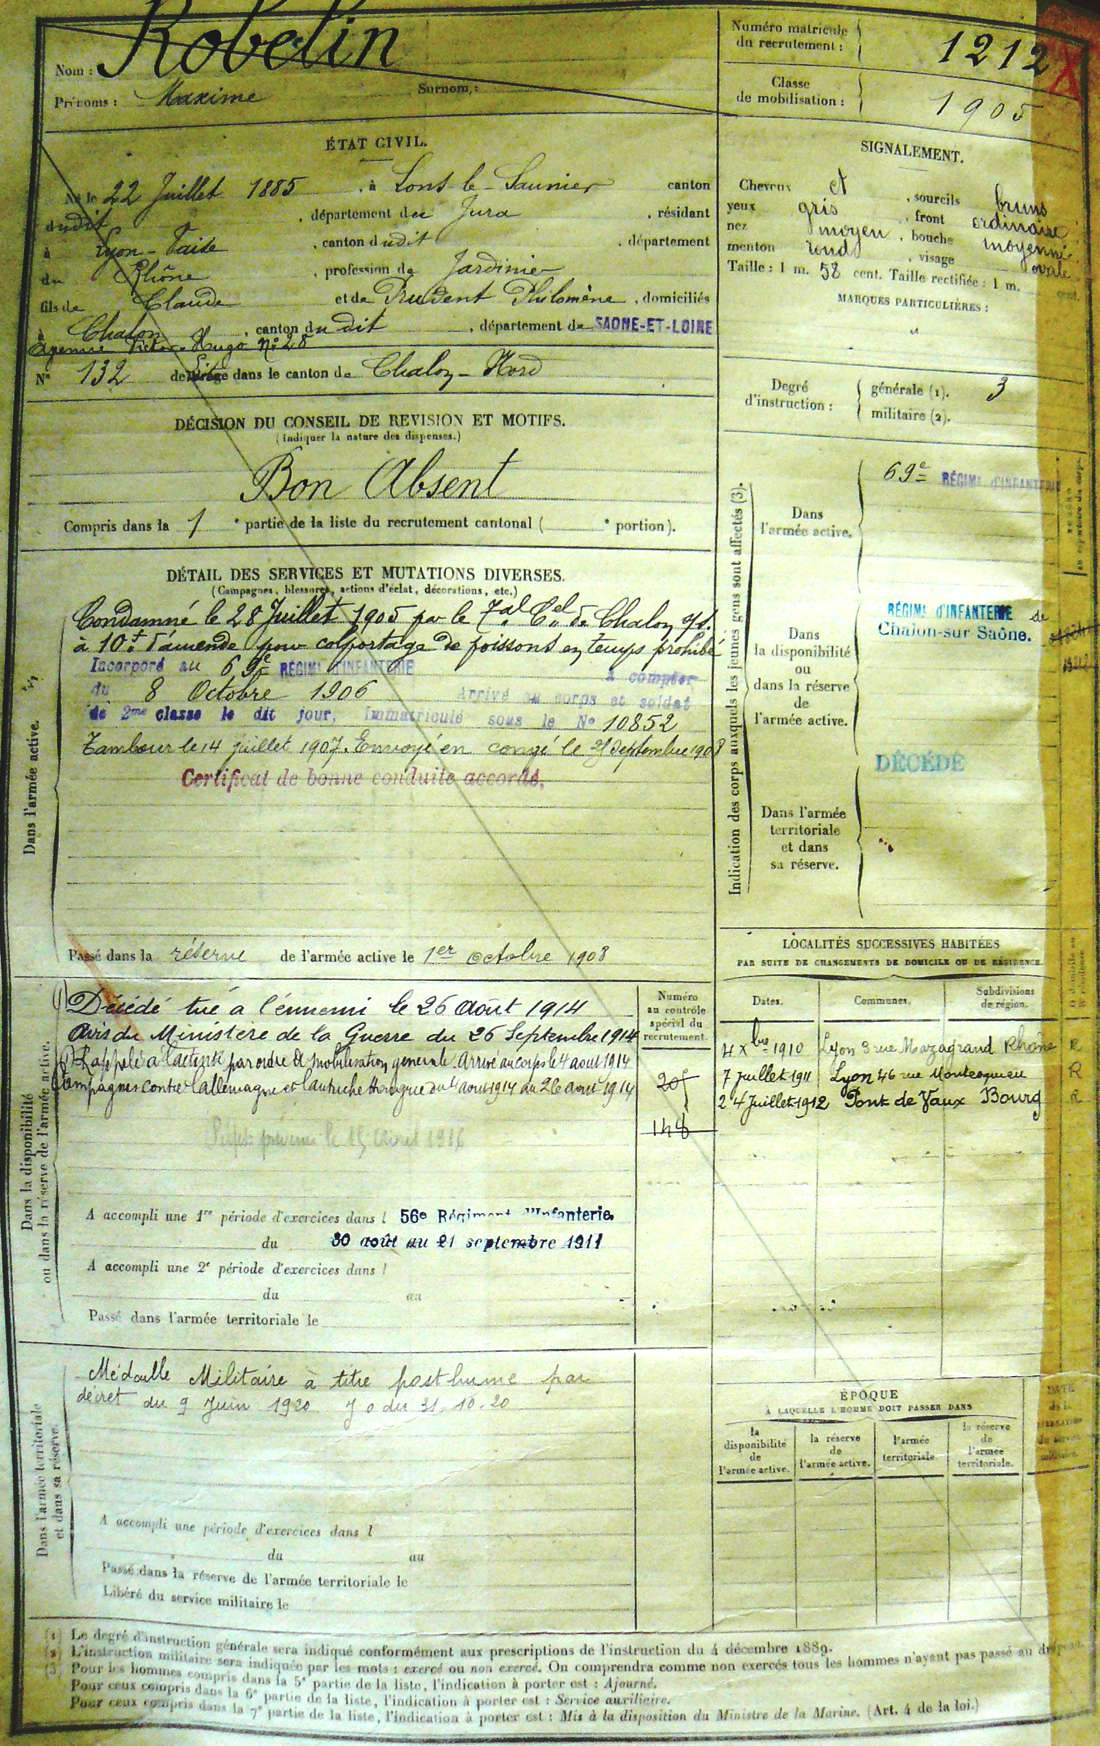 Nom : Robelin
Prénoms : Maxime Surnom :
Numéro matricule du recrutement : 1212
Classe de mobilisation : 1905
ÉTAT CIVIL.
Né le 22 Juillet 1885, à Lons-le-Saunier canton
dudit, département du Jura, résidant
à Lyon-Vaise, canton dudit, département
du Rhône, profession de Jardinier
fils de Claude et de Prudent Philomène, domiciliés
à Chalon, canton dudit, département de SAONE-ET-LOIRE
Victor Hugo No 28
N° 132 de tirage dans le canton de Chalon-Nord
SIGNALEMENT.
Cheveux et, sourcils bruns
yeux gris, front ordinaire
nez moyen, bouche moyenne
menton rond, visage ovale
Taille : 1 m. 58 cent. Taille rectifiée : 1 m. cent.
MARQUES PARTICULIÈRES :
Degré d'instruction : générale (1). 3
militaire (2).
DÉCISION DU CONSEIL DE REVISION ET MOTIFS.
(Indiquer la nature des dispenses.)
Bon Absent
Compris dans la 1e partie de la liste du recrutement cantonal ( e portion).
DÉTAIL DES SERVICES ET MUTATIONS DIVERSES.
(Campagnes, blessures, actions d'éclat, décorations, etc.)
Dans l'armée active.
Condamné le 28 Juillet 1905 par le Tal Cel de Chalon s/s.
à 10f d'amende pour colportage de poissons en temps prohibé
Incorporé au 69e RÉGIMt D'INFANTERIE à compter
du 8 Octobre 1906 Arrivé au corps et soldat
de 2me classe le dit jour, Immatriculé sous le No 10852
Tambour le 14 juillet 1907. Envoyé en congé le 25 Septembre 1908
Certificat de bonne conduite accordé.
Passé dans la réserve de l'armée active le 1er octobre 1908
Indication des corps auxquels les jeunes gens sont affectés (3).
Dans l'armée active.
69e RÉGIMt D'INFANTERIE
Dans la disponibilité ou dans la réserve de l'armée active.
RÉGIMt D'INFANTERIE de
Chalon-sur Saône.
DÉCÉDÉ
Dans l'armée territoriale et dans sa réserve.
Dans la disponibilité ou dans la réserve de l'armée active.
Décédé tué à l'ennemi le 26 Août 1914
Avis du Ministère de la Guerre du 26 Septembre 1914
Rappelé à l'activité par ordre de mobilisation générale. Arrivé au corps le 4 août 1914
Campagnes contre l'allemagne et l'autriche Hongrie du 4 aout 1914 au 26 août 1914
le 15 Août 1916
Numéro au contrôle spécial du recrutement.
205
148
A accompli une 1re période d'exercices dans l 56e Régiment d'Infanterie.
du 30 août au 21 septembre 1911
A accompli une 2e période d'exercices dans l
du au
Passé dans l'armée territoriale le
LOCALITÉS SUCCESSIVES HABITÉES
PAR SUITE DE CHANGEMENTS DE DOMICILE OU DE RÉSIDENCE.
Dates. Communes. Subdivisions de région.
4 Xbre 1910 Lyon 3 rue Mazagrand Rhône R
7 Juillet 1911 Lyon 46 rue Montesquieu R
24 Juillet 1912 Pont de Vaux Bourg R
Dans l'armée territoriale et dans sa réserve.
Médaille Militaire à titre posthume par
décret du 9 Juin 1920 J o du 31.10.20
A accompli une période d'exercices dans l
du au
Passé dans la réserve de l'armée territoriale le
Libéré du service militaire le
ÉPOQUE
À LAQUELLE L'HOMME DOIT PASSER DANS
la disponibilité de l'armée active.
la réserve de l'armée active.
l'armée territoriale.
la réserve de l'armée territoriale.
(1) Le degré d'instruction générale sera indiqué conformément aux prescriptions de l'instruction du 4 décembre 1889.
(2) L'instruction militaire sera indiquée par les mots : exercé ou non exercé. On comprendra comme non exercés tous les hommes n'ayant pas passé au drapeau.
(3) Pour les hommes compris dans la 5e partie de la liste, l'indication à porter est : Ajourné.
Pour ceux compris dans la 6e partie de la liste, l'indication à porter est : Service auxiliaire.
Pour ceux compris dans la 7e partie de la liste, l'indication à porter est : Mis à la disposition du Ministre de la Marine. (Art. 4 de la loi.)